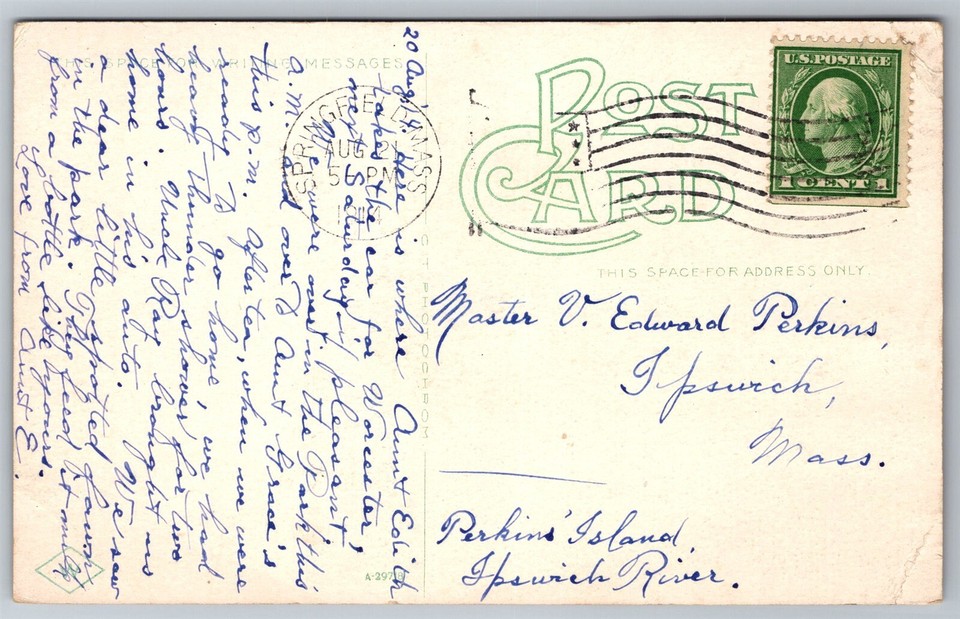 THIS SPACE FOR WRITING MESSAGES
20 Aug. '14
Here is where Aunt Edith
takes the car for Worcester
next Saturday if pleasant.
We were over in the Park this
A.M. and over to Aunt Grace's
this P.M. After tea, when we were
ready to go home, we had
heavy thunder shower for two
hours. Uncle Ray brought us
home in his auto. We saw
a dear little spotted fawn
in the park. They feed it milk
from a bottle like yours.
Love from Aunt E.
SPRINGFIELD, MASS.
AUG 21
5 PM
1914
POST
CARD
U.S. POSTAGE
1 CENT 1
THIS SPACE FOR ADDRESS ONLY.
Master V. Edward Perkins,
Ipswich,
Mass.
Perkins' Island,
Ipswich River.
PHOTOCHROM
A-297